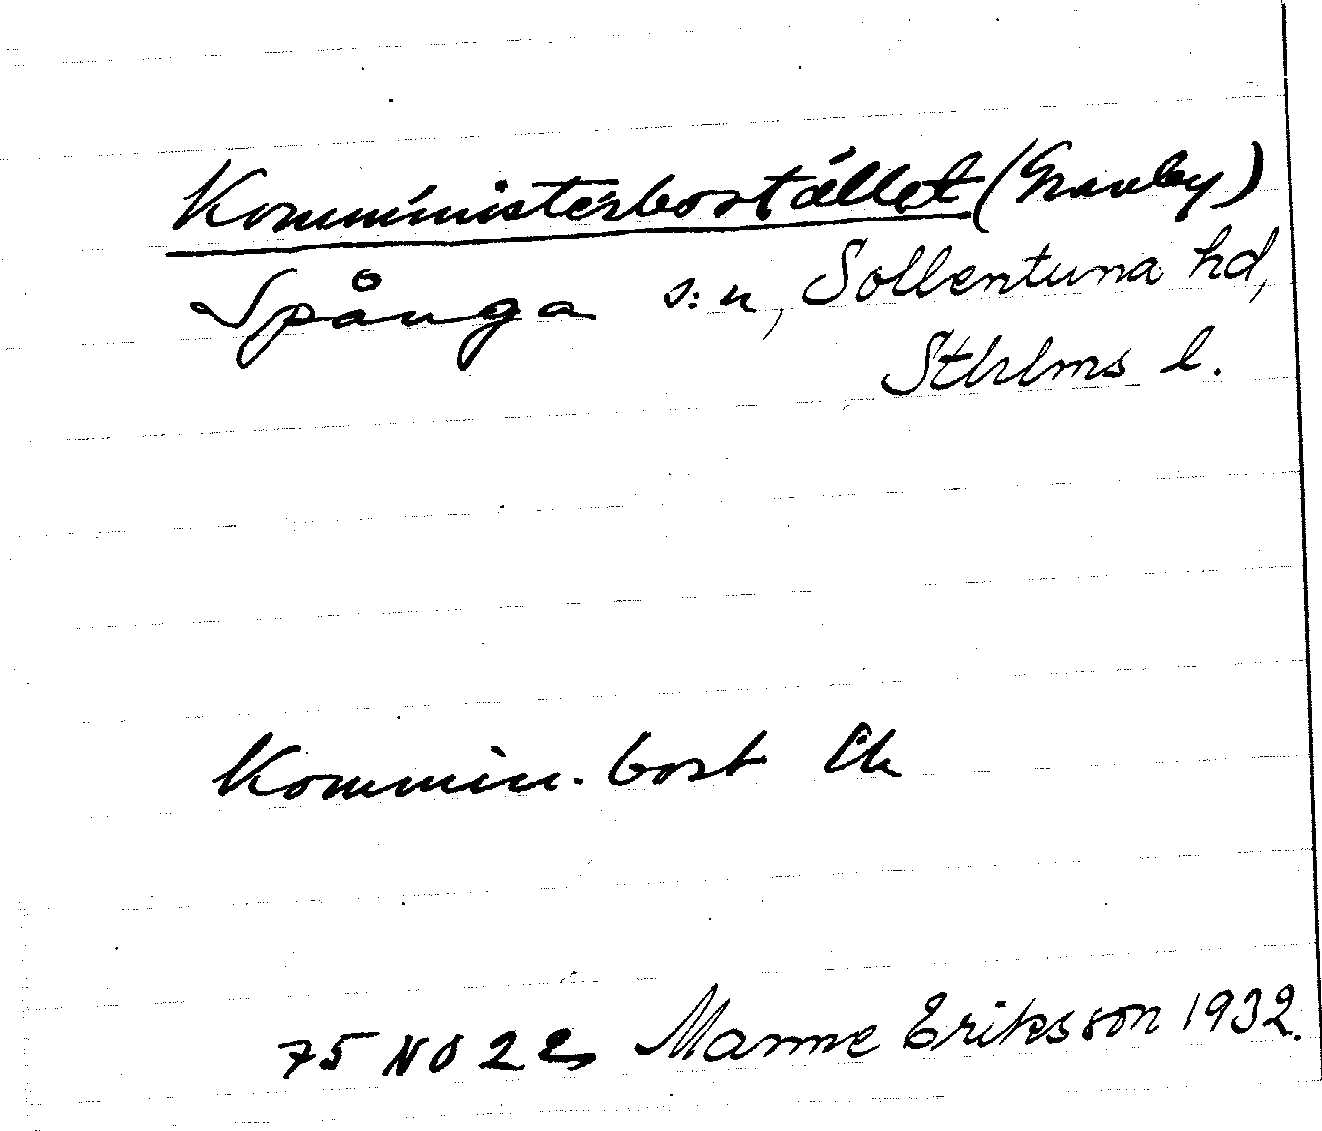 Komministerbostället (Granby)
Spånga s:n, Sollentuna hd,
Sthlms l.
Kommin. bost Ek
75 NO 2 e, Manne Eriksson 1932.